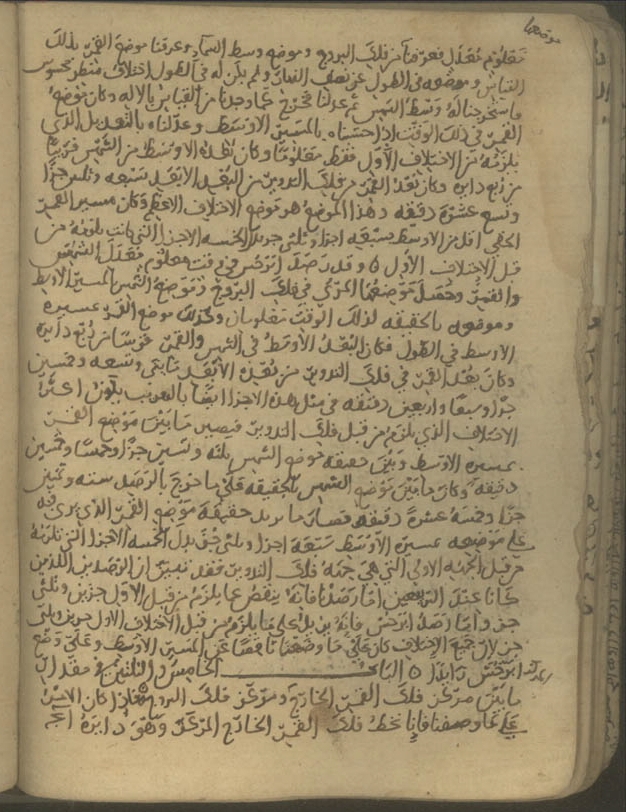 موضعها
معلوم معدل فعرفنا من فلك البروج وموضع وسط السماء وعرفنا موضع القمر بذلك
القياس وموضعه في الطول عن نصف النهار ولم يكن له في الطول اختلاف منظر محسوس
فاستخرجنا له وسط الشمس بالاله وكان موضع
القمر في ذلك الوقت اذا حسبناه بالمسير الاوسط وعدلناه بالتعديل الذي
يلزمه من الاختلاف الاول فقط معلوما وكان بعده الاوسط من الشمس قريبا
من ربع دايره وكان بعد القمر من فلك التدوير من البعد الابعد سبعه وثلثين جزا
وتسع عشره دقيقه وهذا الموضع هو موضع الاختلاف الاعظم وكان مسير القمر
الحقي اقل من الاوسط بسبعه اجزا وثلثي جزو بدل الخمسه الاجزا التي كانت تلزمه من
قبل الاختلاف الاول وقد رصد ابرخس في وقت معلوم معدل الشمس
والقمر وحصل موضعهما المرئي في فلك البروج وموضع الشمس بالمسير الاوسط
وموضعه بالحقيقه لذلك الوقت معلومان وكذلك موضع القمر بمسيره
الاوسط في الطول فكان البعد الاوسط في الشمس والقمر من ربع دايره
وكان بعد القمر في فلك التدوير من بعده الابعد مايتي وتسعه وخمسين
جزا وسبعا واربعين دقيقه في مثل هذه الاجزا ايضا بالتقريب يكون اعظم
الاختلاف الذي يلزم من قبل فلك التدوير فيصير ما بين موضع القمر
بمسيره الاوسط وبين حقيقه موضع الشمس ثلثه وتسعين جزا وخمسا وخمسين
دقيقه وكان ما بين موضع الشمس بالحقيقه على ما خرج بالرصد سته وثمنين
جزا وخمسه عشره دقيقه فصار ما يزيد حقيقه موضع القمر الذي يرى فيه
على موضعه بمسيره الاوسط سبعه اجزا وثلثي جزو بدل الخمسه الاجزا التي تلزمه
من قبل الجهه الاولي التي هي جهه فلك التدوير فقد تبين ان الرصدين اللذين
كانا عند التربيعين اما رصدنا فانه ينقص عما يلزم من قبل الاول جزين وثلثي
جزو واما رصد ابرخس فانه يزيد على ما يلزم من قبل الاختلاف الاول جزين وثلثي
جزو لان جميع الاختلاف كان على ما وضعنا ناقصا عن المسير الاوسط وعلى وضع
ابرخس زايدا الباب الخامس والثلثين في مقدار
ما بين مركز فلك القمر الخارج ومركز فلك البروج فاذا كان الامر
على ما وصفنا فانا نخط فلك القمر الخارج المركز وهو دايره ا ب ج